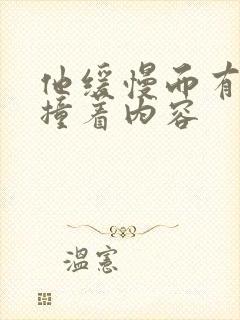 他缓慢而有
撞着内容
温宪